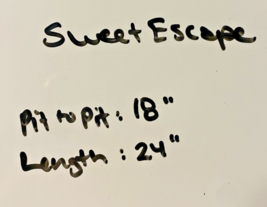 Sweet Escape
Pit to Pit: 18"
Length: 24"